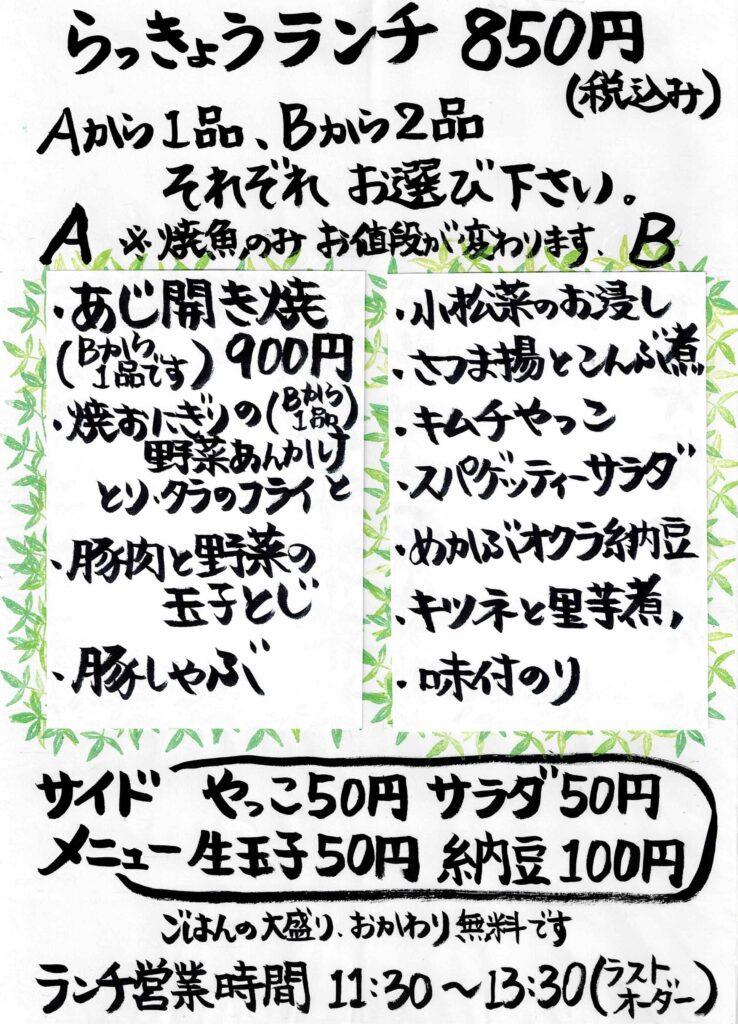 らっきょうランチ 850円
(税込み)
Aから1品、Bから2品
それぞれ お選び下さい。
A ※焼魚のみ お値段が変わります、 B
・あじ開き焼
(Bから1品です) 900円
・焼おにぎりの(Bから1品)
野菜あんかけ
とり、タラのフライと
・豚肉と野菜の
玉子とじ
・豚しゃぶ
・小松菜のお浸し
・さつま揚とこんぶ煮
・キムチやっこ
・スパゲッティーサラダ
・めかぶオクラ納豆
・キツネと里芋煮,
・味付のり
サイド やっこ50円 サラダ50円
メニュー 生玉子50円 納豆100円
ごはんの大盛り、おかわり無料です
ランチ営業時間 11:30〜13:30(ラストオーダー)